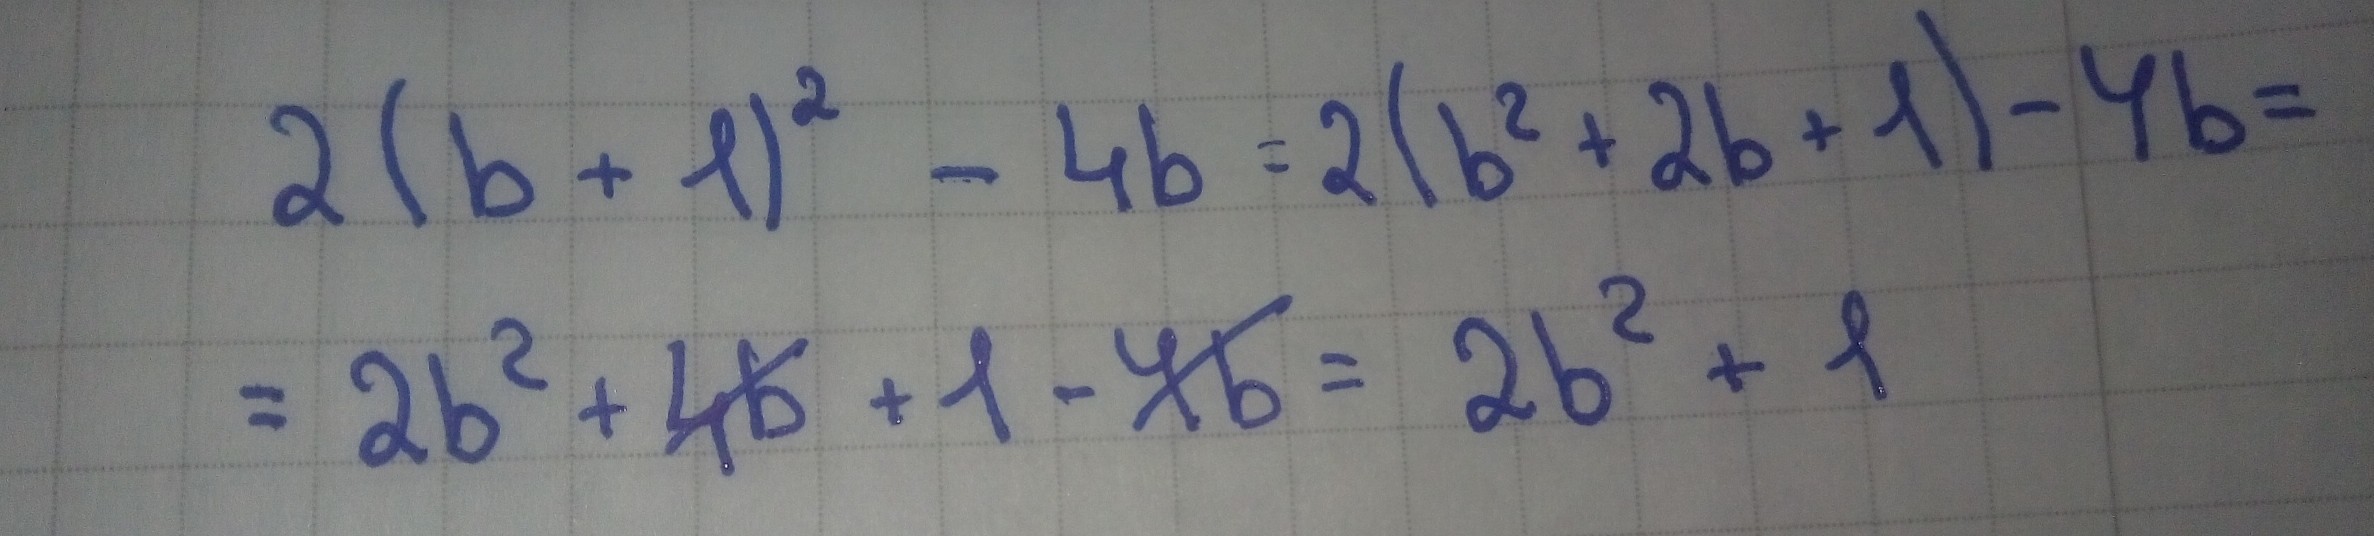 2(b + 1)² - 4b = 2(b² + 2b + 1) - 4b =
= 2b² + 4b + 1 - 4b = 2b² + 1